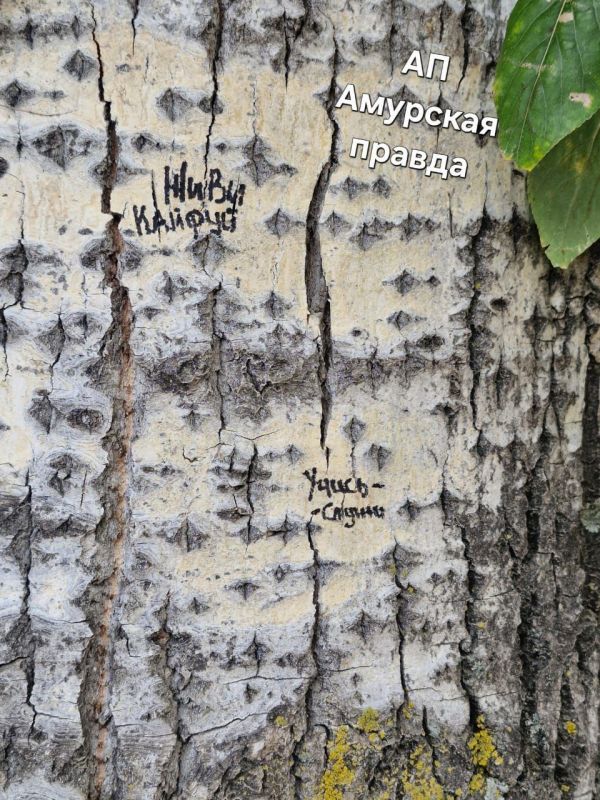 АП
Амурская
правда
Живи
Кайфуй
Учись-